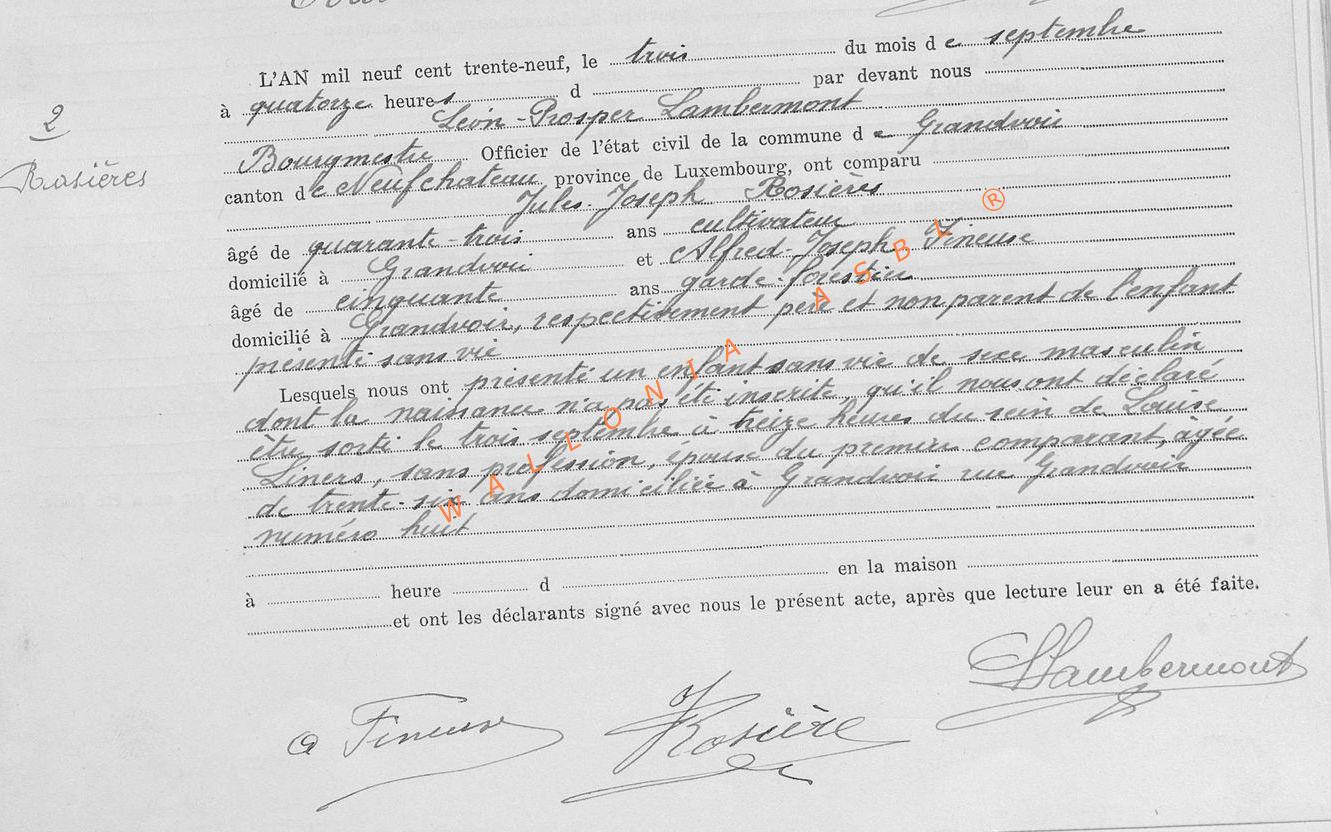 2
Rosières
L'AN mil neuf cent trente-neuf, le trois du mois de septembre
à quatorze heures d par devant nous
Léon-Prosper Lambermont
Bourgmestre Officier de l'état civil de la commune de Grandvoir
canton de Neufchateau province de Luxembourg, ont comparu
Jules-Joseph Rosières
âgé de quarante-trois ans cultivateur
domicilié à Grandvoir et Alfred-Joseph Fineuse
âgé de cinquante ans garde-forestier
domicilié à Grandvoir, respectivement père et non parent de l'enfant
présenté sans vie
Lesquels nous ont présenté un enfant sans vie de sexe masculin
dont la naissance n'a pas été inscrite qu'il nous ont déclaré
être sorti le trois septembre à treize heures du sein de Louise
Liners, sans profession, épouse du premier comparant, âgée
de trente-six ans domiciliée à Grandvoir rue Grandvoir
numéro huit
à heure d en la maison
et ont les déclarants signé avec nous le présent acte, après que lecture leur en a été faite.
a Fineuse J Rosière Lambermont
WALLONIA ASBL ®